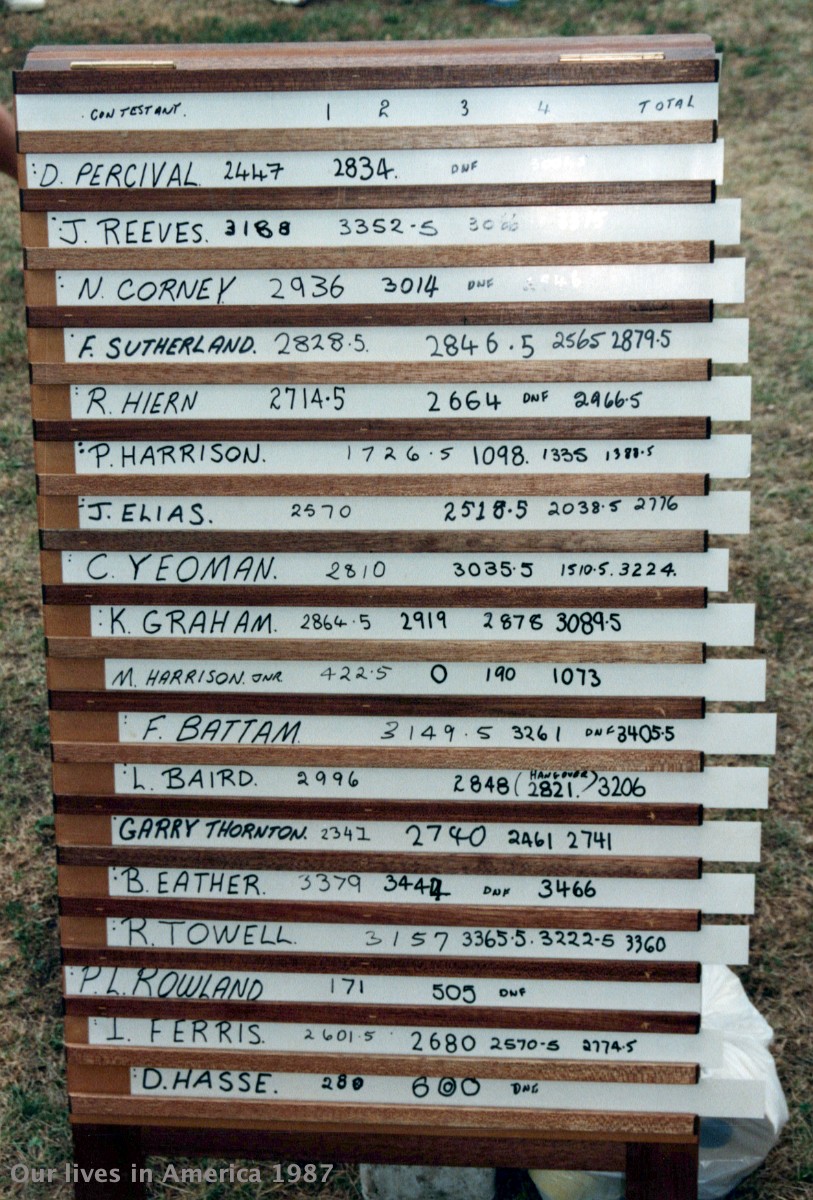 CONTESTANT. 1 2 3 4 TOTAL
D. PERCIVAL. 2447 2834. DNF
J. REEVES. 3188 3352.5
N. CORNEY 2936 3014 DNF
F. SUTHERLAND. 2828.5. 2846.5 2565 2879.5
R. HIERN 2714.5 2664 DNF 2966.5
P. HARRISON. 1726.5 1098. 1335 1388.5
J. ELIAS. 2570 2518.5 2038.5 2776
C. YEOMAN. 2810 3035.5 1510.5. 3224.
K. GRAHAM. 2864.5 2919 2878 3089.5
M. HARRISON. JNR 422.5 0 190 1073
F. BATTAM. 3149.5 3261 DNF 3405.5
L. BAIRD. 2996 2848 (HANGOVER) 2821. 3206
GARRY THORNTON. 2341 2740 2461 2741
B. EATHER. 3379 DNF 3466
R. TOWELL. 3157 3365.5. 3222-5 3360
P.L. ROWLAND 171 505 DNF
I. FERRIS. 2601.5 2680 2570-5 2774.5
D. HASSE. 280 600
Our lives in America 1987